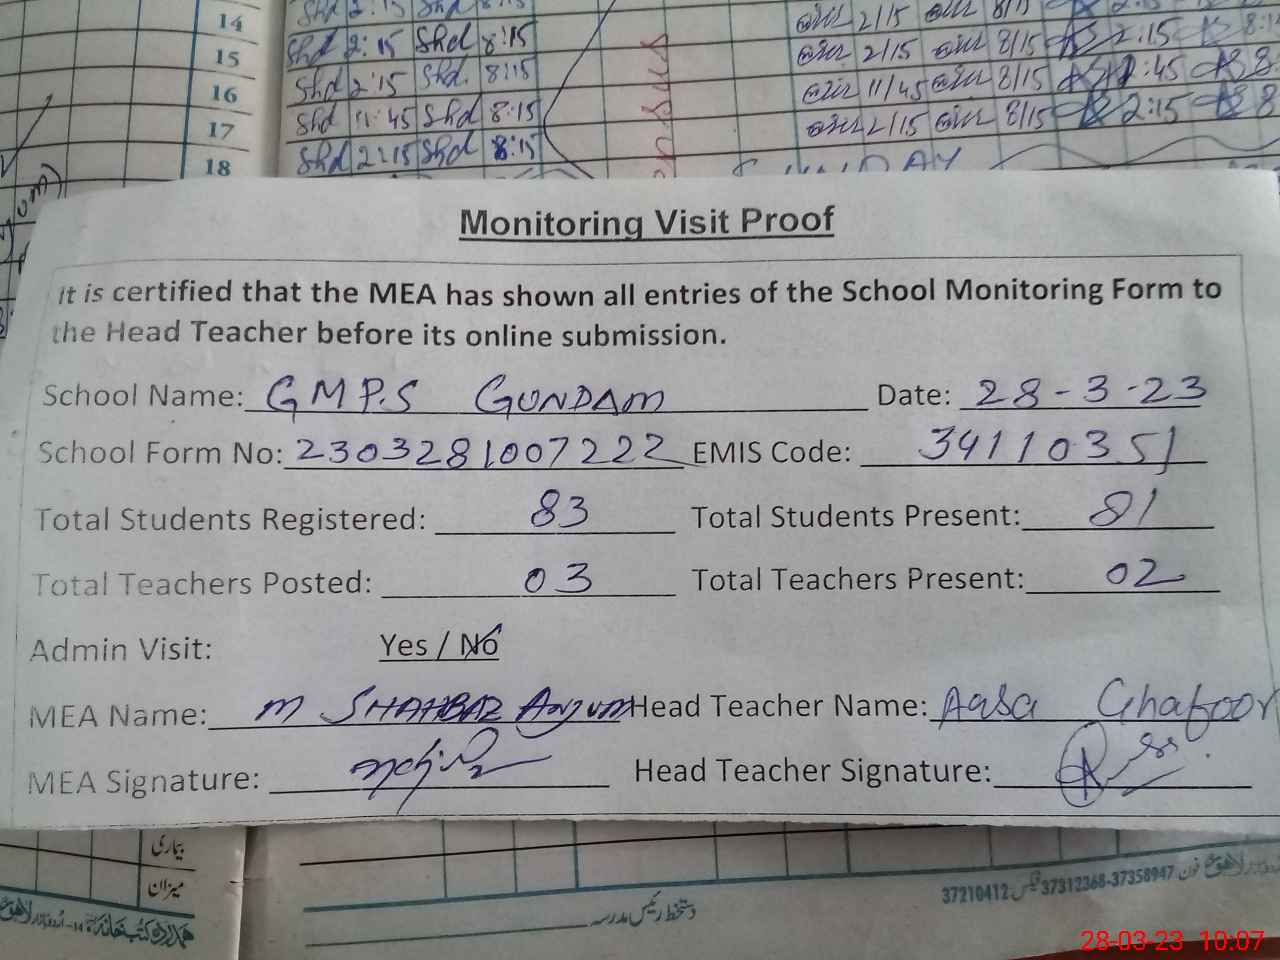 14 Shd 2:15 Shd 8:15 2/15 8/15
15 Shd 2:15 Shd 8:15 2/15 8/15 2:15 8:1
16 Shd 2:15 Shd. 8:15 11/45 8/15 :45 8
17 Shd 11:45 Shd 8:15 2/15 8/15 2:15 8
18 Shd 2:15 Shd 8:15
Monitoring Visit Proof
It is certified that the MEA has shown all entries of the School Monitoring Form to
the Head Teacher before its online submission.
School Name: GMP.S GUNDAM Date: 28-3-23
School Form No: 2303281007222 EMIS Code: 34110351
Total Students Registered: 83 Total Students Present: 81
Total Teachers Posted: 03 Total Teachers Present: 02
Admin Visit: Yes / No
MEA Name: M SHAHBAZ Anjum Head Teacher Name: Aasa Ghafoor
MEA Signature: Head Teacher Signature:
بیماری
میزان
دستخط رئیس مدرسہ
لاہور فون 37358947-37312368 فیکس 37210412
28-03-23 10:07